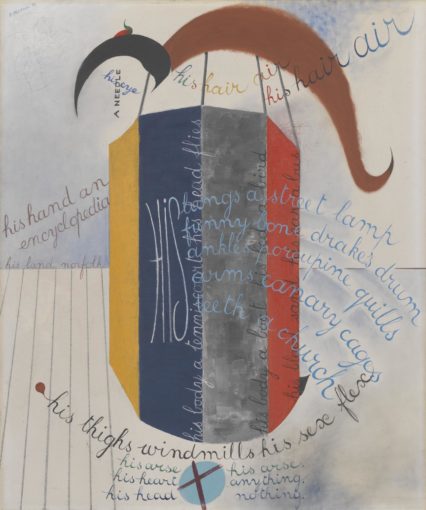 his hair air
his hair air
A NEEDLE
his eye
his hand an
encyclopedia
his land norfolk
HIS
lungs a street lamp
funny bone drake's drum
ankles porcupine quills
arms canary cages
teeth a church
his body a tennis
head flies
his body a boot
bird
his thighs windmills his sex flex
his arse his arse.
his heart anything.
his head nothing.